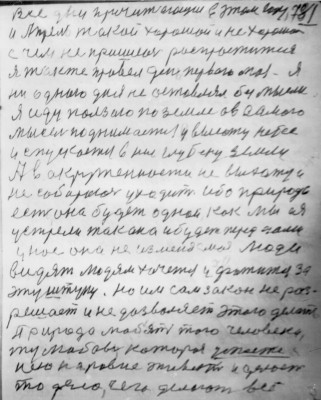 Все дни причитающи в этом году, 1981
и Апрель такой хороший и не хорош
с чем не пришлось распроститься
я также провел день первого мая. Я
ни одного дня не оставлял бы мысли
Я иду ползаю по земле а в самого
мысль поднимается у высоту небес
и спускается в низ глубену земли
А в окружености не выхожу и
не собираюсь уходить ибо природа
есть она будет одной, как мы ея
устрели такана и будет перед нами
у нас она не изменя моя Люди
видят людям хочется и гонится за
эту штуку. Но им сам закон не раз-
решает и не дозволяет этого делать
Природа любят того человека,
ту любовь, которая
нею наровне живет и делает
то дело, чего делают все